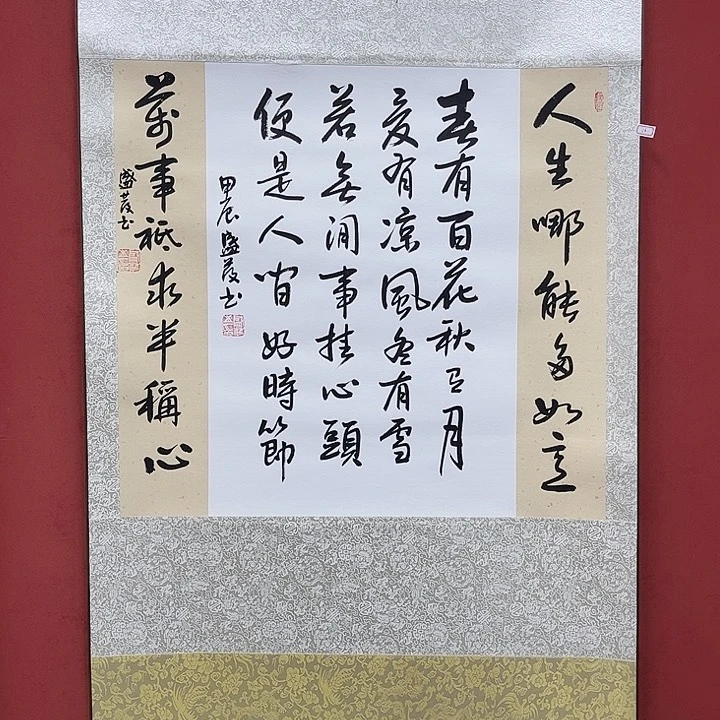 人生哪能多如意
春有百花秋有月
夏有涼風冬有雪
若無闲事挂心頭
便是人间好時節
甲辰 盛 书
萬事祗求半稱心
盛 书